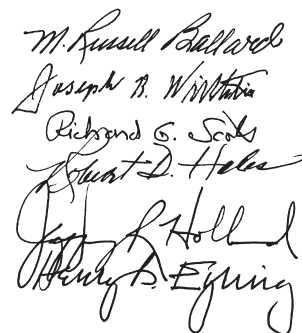 M. Russell Ballard
Joseph B. Wirthlin
Richard G. Scott
Robert D. Hales
Jeffrey R Holland
Henry B. Eyring